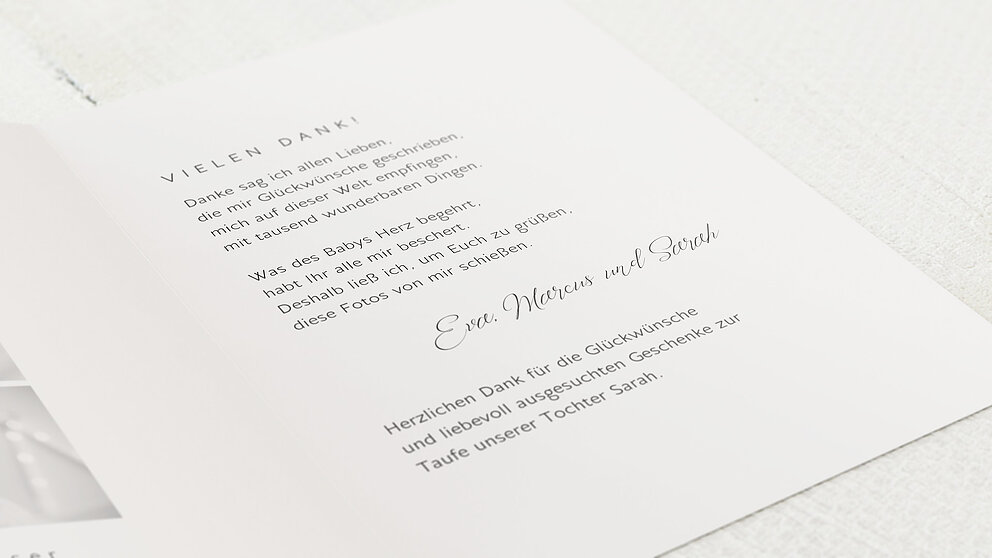 VIELEN DANK!
Danke sag ich allen Lieben,
die mir Glückwünsche geschrieben,
mich auf dieser Welt empfingen,
mit tausend wunderbaren Dingen.
Was des Babys Herz begehrt,
habt Ihr alle mir beschert.
Deshalb ließ ich, um Euch zu grüßen,
diese Fotos von mir schießen.
Eva, Marcus und Sarah
Herzlichen Dank für die Glückwünsche
und liebevoll ausgesuchten Geschenke zur
Taufe unserer Tochter Sarah.